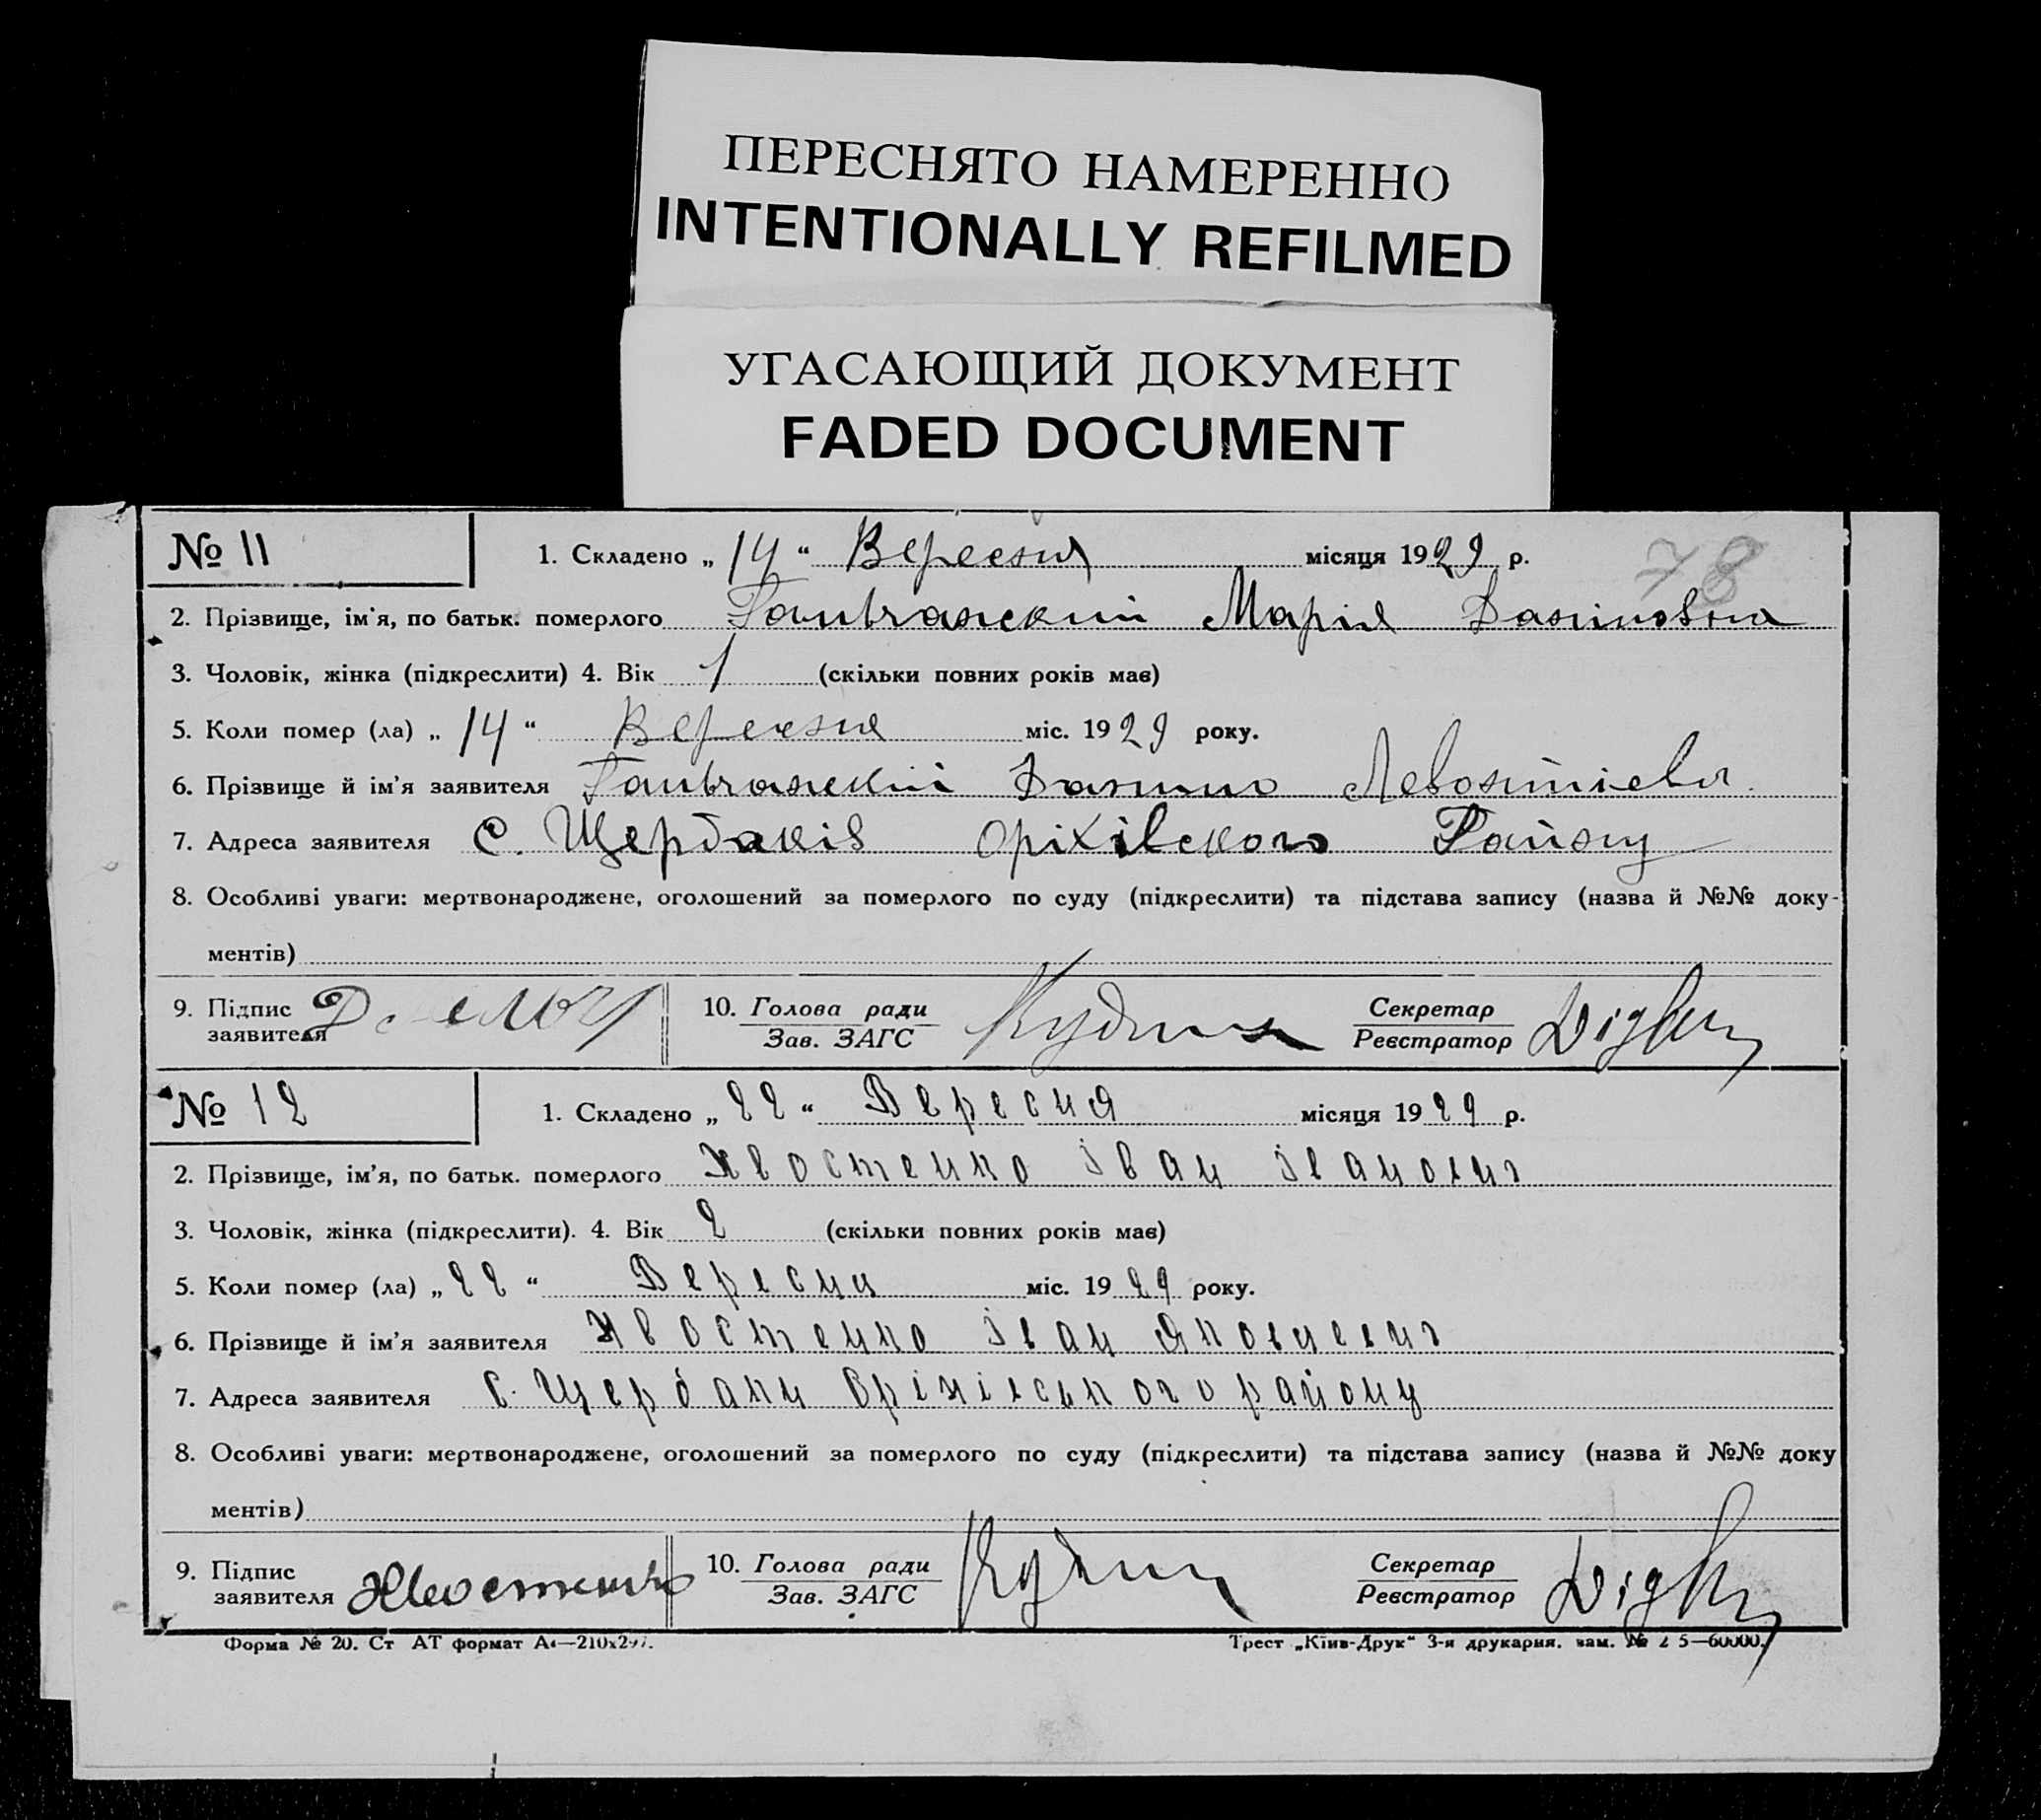 ПЕРЕСНЯТО НАМЕРЕННО
INTENTIONALLY REFILMED
УГАСАЮЩИЙ ДОКУМЕНТ
FADED DOCUMENT
№ 11 1. Складено „ 14 “ Вересня місяця 1929 р. 78
2. Прізвище, ім'я, по батьк. померлого Марія
3. Чоловік, жінка (підкреслити) 4. Вік 1 (скільки повних років має)
5. Коли помер (ла) „ 14 “ Вересня міс. 1929 року.
6. Прізвище й ім'я заявителя
7. Адреса заявителя С. Щербаків Оріхівского Району
8. Особливі уваги: мертвонароджене, оголошений за померлого по суду (підкреслити) та підстава запису (назва й №№ доку-
ментів)
9. Підпис заявителя 10. Голова ради Зав. ЗАГС Секретар Реєстратор
№ 12 1. Складено „ 22 “ Вересня місяця 1929 р.
2. Прізвище, ім'я, по батьк. померлого Хвостенко Іван Іванович
3. Чоловік, жінка (підкреслити). 4. Вік 2 (скільки повних років має)
5. Коли помер (ла) „ 22 “ Вересня міс. 1929 року.
6. Прізвище й ім'я заявителя Хвостенко Іван Яковлевич
7. Адреса заявителя с. Щербаки Оріхівського району
8. Особливі уваги: мертвонароджене, оголошений за померлого по суду (підкреслити) та підстава запису (назва й №№ доку
ментів)
9. Підпис заявителя Хвостенко 10. Голова ради Зав. ЗАГС Секретар Реєстратор
Форма № 20. Ст АТ формат А4—210х297. Трест „Київ-Друк“ 3-я друкарня. зам. №